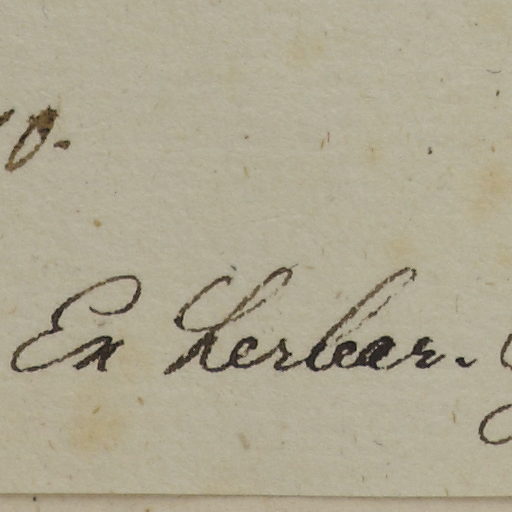 Ex herbar.